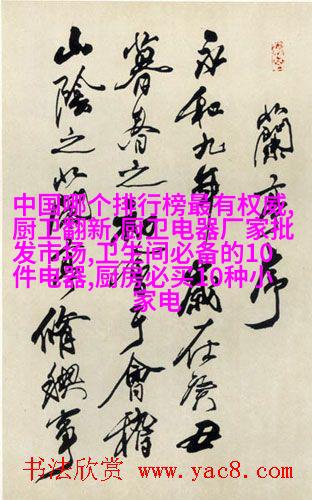 蘭亭序
永和九年歲在癸丑
暮春之初會于會稽
山陰之蘭亭脩禊事
中国哪个排行榜最有权威,
厨卫翻新,厨卫电器厂家批
发市场,卫生间必备的10
件电器,厨房必买10种小
家电
书法欣赏 www.yac8.com